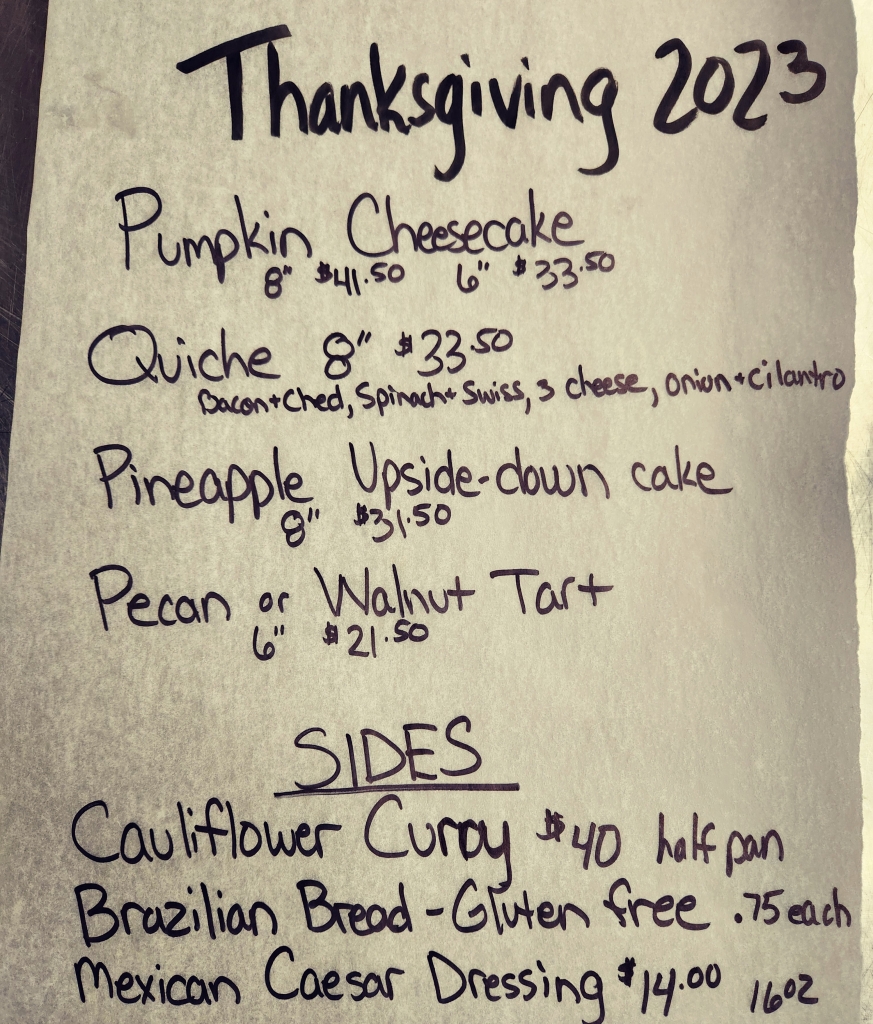 Thanksgiving 2023
Pumpkin Cheesecake
8" $41.50 6" $33.50
Quiche 8" $33.50
Bacon+Ched, Spinach+Swiss, 3 cheese, onion+cilantro
Pineapple Upside-down cake
8" $31.50
Pecan or Walnut Tart
6" $21.50
SIDES
Cauliflower Curry $40 half pan
Brazilian Bread - Gluten free .75 each
Mexican Caesar Dressing $14.00 16oz